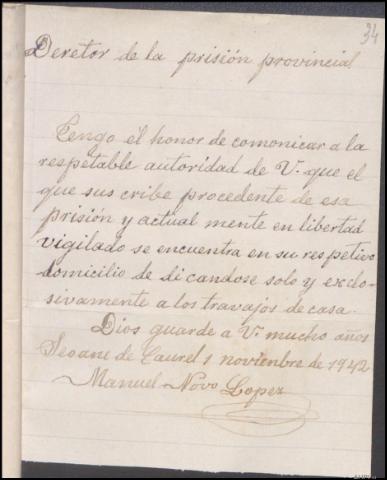 34
Deretor de la prisión provincial
Tengo el honor de comonicar a la
respetable autoridad de V. que el
que sus cribe procedente de esa
prisión y actual mente en libertad
vigilado se encuentra en su respetivo
domicilio de di candose solo y exclo-
sivamente a los travajos de casa.
Dios guarde a V. mucho años
Seoane de Caurel 1 noviembre de 1942
Manuel Novo Lopez